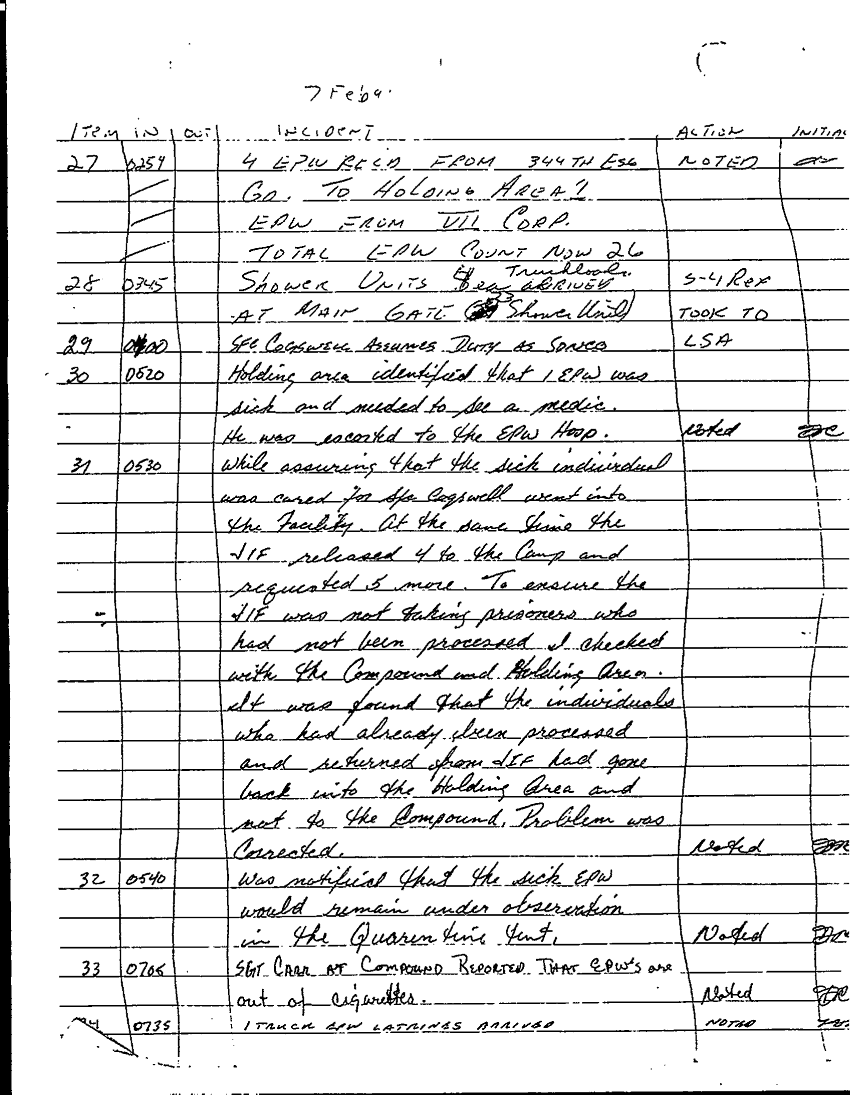 7 Feb 9
ITEM IN OUT INCIDENT ACTION INITIAL
27 0259 4 EPW REC'D FROM 344TH ESG NOTED
GO. TO HOLDING AREA 2
EPW FROM VII CORP.
TOTAL EPW COUNT NOW 26
Truckloads
28 0345 SHOWER UNITS ARRIVED S-4 Rex
AT MAIN GATE (23 Shower Units) TOOK TO
29 0400 SFC COGSWELL ASSUMES DUTY AS LSA
30 0520 Holding area identified that 1 EPW was
sick and needed to see a medic.
He was escorted to the EPW Hosp. Noted
31 0530 While assuring that the sick individual
was cared for Sfc Cogswell went into
the Facility. At the same time the
JIF released 4 to the Camp and
requested 5 more. To ensure the
JIF was not taking prisoners who
had not been processed I checked
with the Compound and Holding Area.
It was found that the individuals
who had already been processed
and returned from JIF had gone
back into the Holding Area and
not to the Compound. Problem was
Corrected. Noted
32 0540 Was notified that the sick EPW
would remain under observation
in the Quarentine tent. Noted
33 0705 SGT CARR AT COMPOUND REPORTED THAT EPW's are
out of cigarettes. Noted
34 0735 1 TRUCK EPW LATRINES ARRIVED NOTED